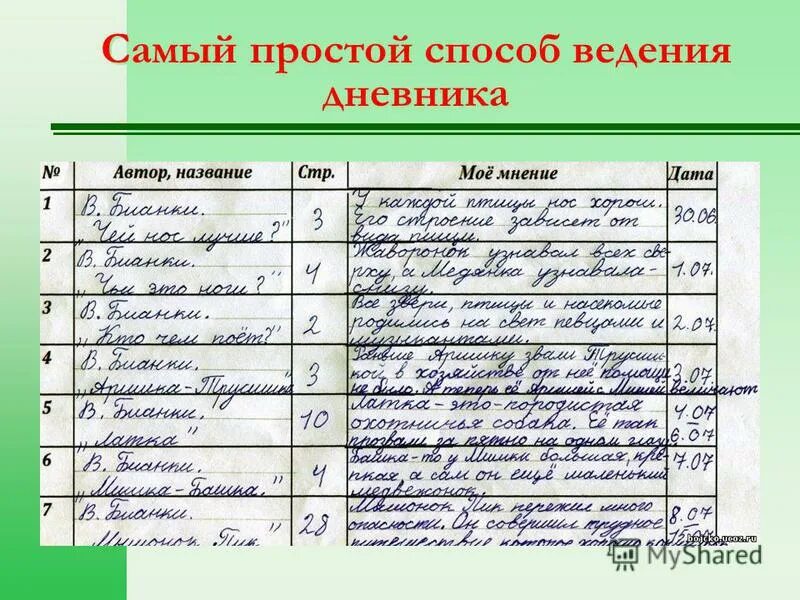 Самый простой способ ведения
дневника
№ Автор, название Стр. Моё мнение Дата
1 В. Бианки. 3 У каждой птицы нос хорош. 30.06
„Чей нос лучше?" Его строение зависит от
вида пищи.
2 В. Бианки. 4 Жаворонок узнавал всех све- 1.07.
„Чьи это ноги?" рху, а Медянка узнавала-
снизу.
3 В. Бианки. 2 Все звери, птицы и насекомые 2.07.
„Кто чем поёт?" родились на свет певцами и
музыкантами.
4 В. Бианки. 3 Раньше Аришку звали Труси- 3.07
„Аришка-Трусишка" кой, в хозяйстве от неё помощи
не было. А теперь её Аришей с Мишей величают
5 В. Бианки. 10 Латка-это-породистая 4.07
„Латка" охотничья собака. Её так 6.07
прозвали за пятно на одном глазу.
6 В. Бианки. 4 Башка-то у Мишки большая, кре- 7.07
„Мишка-Башка." пкая, а сам он ещё маленький
медвежонок.
7 В. Бианки. 28 Мышонок Пик пережил много 8.07
„Мышонок Пик" опасности. Он совершил трудное 15.07
путешествие которое хорошо
bojcko.ucoz.ru
MyShared